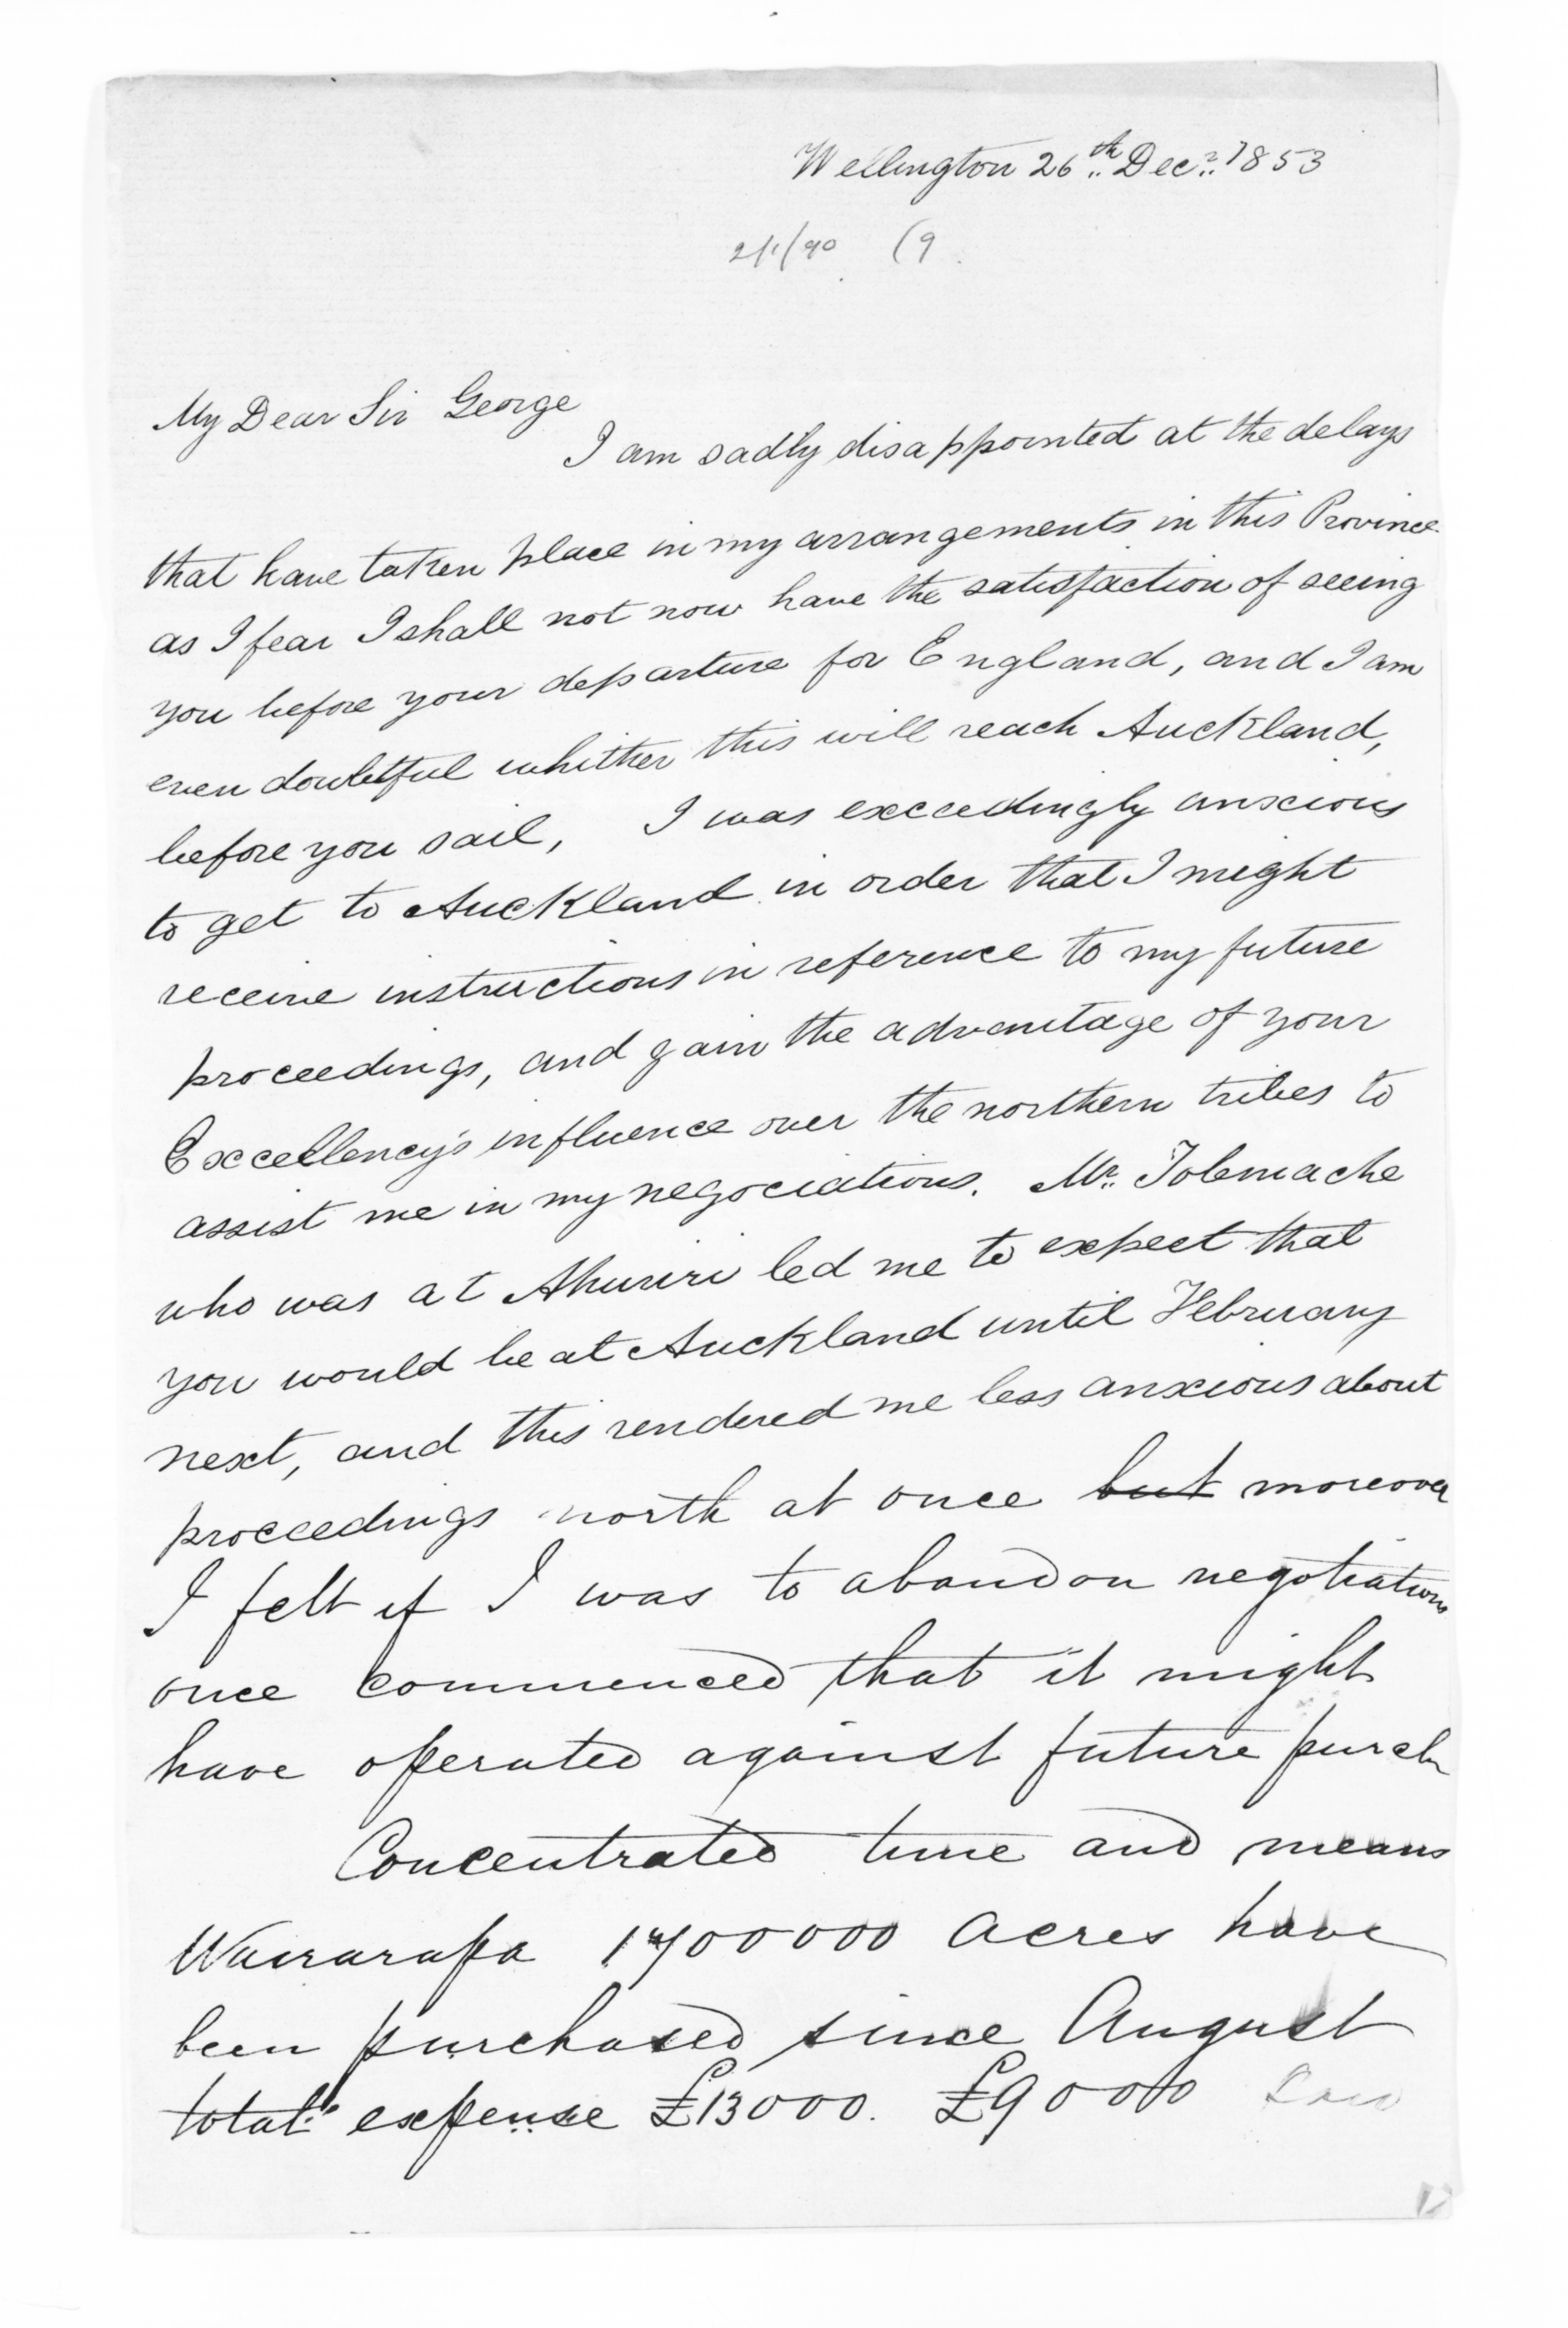 Wellington 26th Decr 1853
2/1/90 (9.
My Dear Sir George
I am sadly disappointed at the delays
that have taken place in my arrangements in this Province
as I fear I shall not now have the satisfaction of seeing
you before your departure for England, and I am
even doubtful whither this will reach Auckland,
before you sail, I was exceedingly anxious
to get to Auckland in order that I might
receive instructions in reference to my future
proceedings, and gain the advantage of your
Excellency's influence over the northern tribes to
assist me in my negociations. Mr. Tolemache
who was at Ahuriri led me to expect that
you would be at Auckland until February
next, and this rendered me less anxious about
proceedings north at once but moreover
I felt if I was to abandon negotiations
once commenced that it might
have operated against future purch
Concentrated time and means
Wairarapa 1700000 acres have
been purchased since August
total expense £13000. £9000